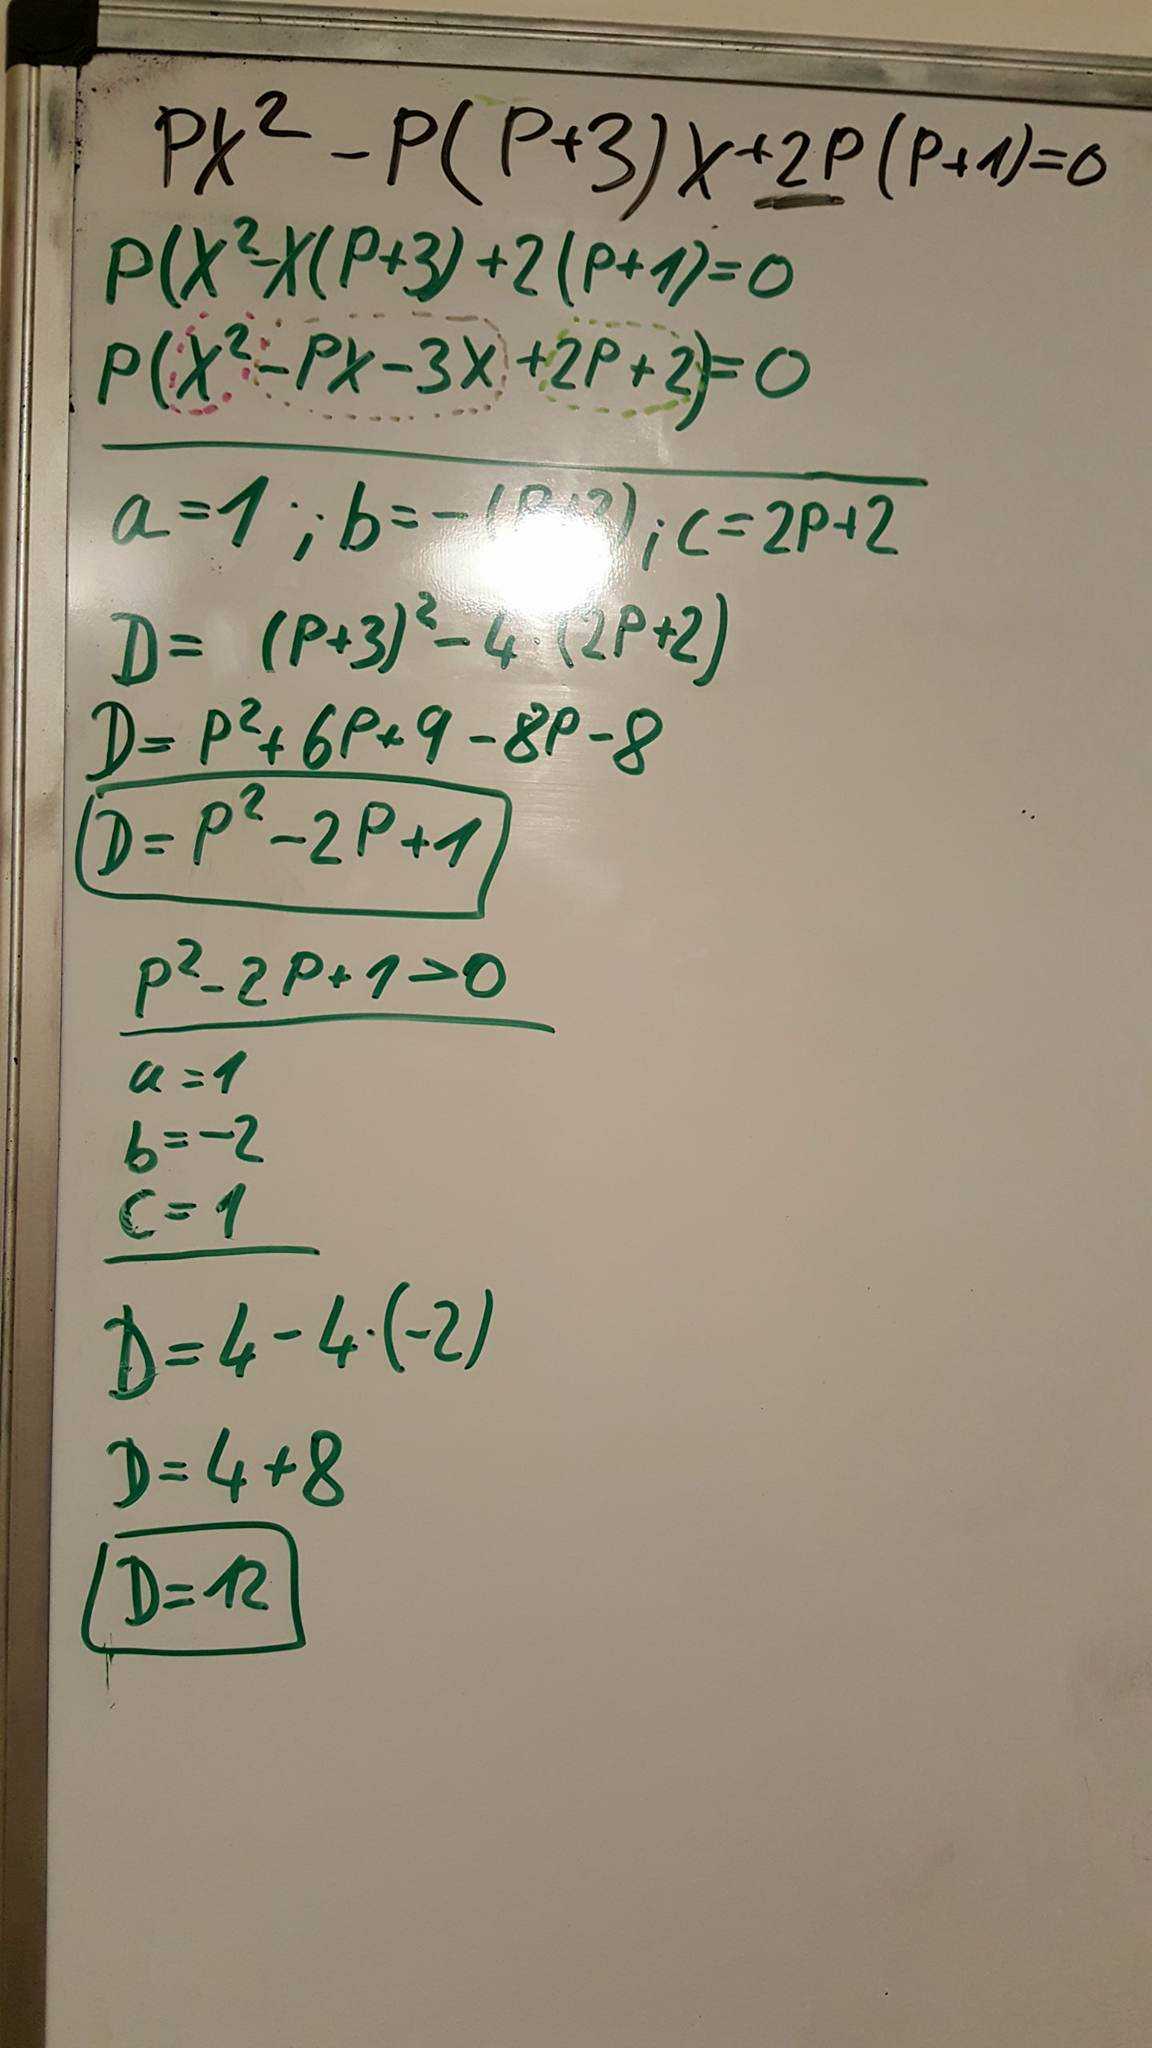 PX² - P(P+3)X+2P(P+1)=0
P(X²-X(P+3)+2(P+1)=0
P(X²-PX-3X+2P+2)=0
a=1 ; b=-(P+3) ; c=2P+2
D= (P+3)²-4·(2P+2)
D=P²+6P+9-8P-8
D=P²-2P+1
P²-2P+1>0
a=1
b=-2
c=1
D=4-4·(-2)
D=4+8
D=12